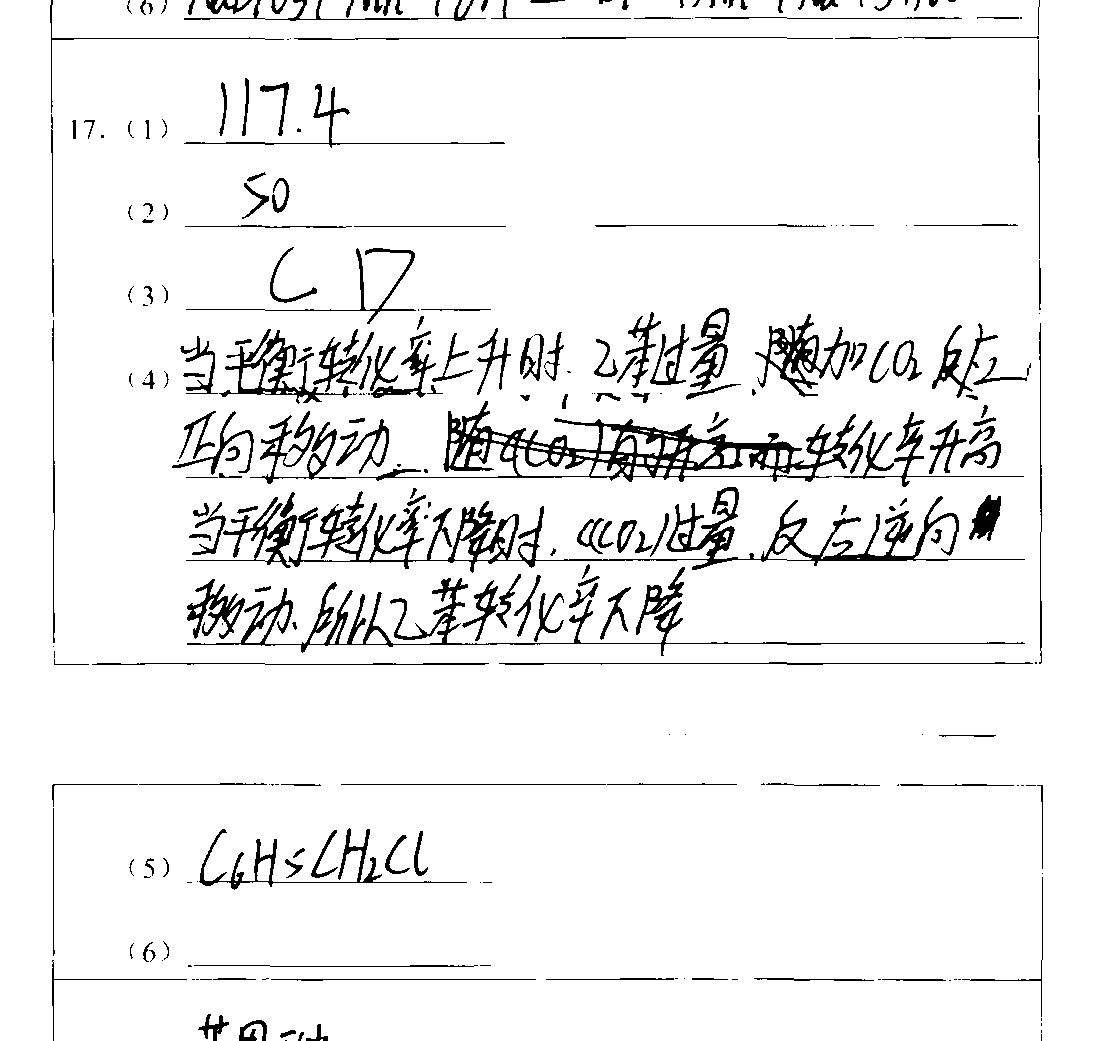 (6)
17. (1) 117.4
(2) 50
(3) C D
(4) 当平衡转化率上升时. 乙苯过量, 随加CO2 反应
正向移动. 转化率升高
当平衡转化率下降时, c(CO2)过量, 反应逆向
移动, 所以乙苯转化率下降
(5) C6H5CH2Cl
(6)